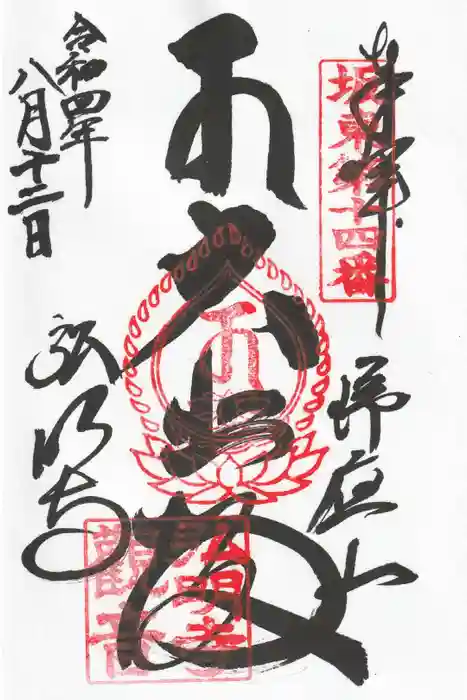 奉拝
坂東第十四番
瑞應山
大悲
弘明寺
觀音
弘明寺
令和四年
八月十二日